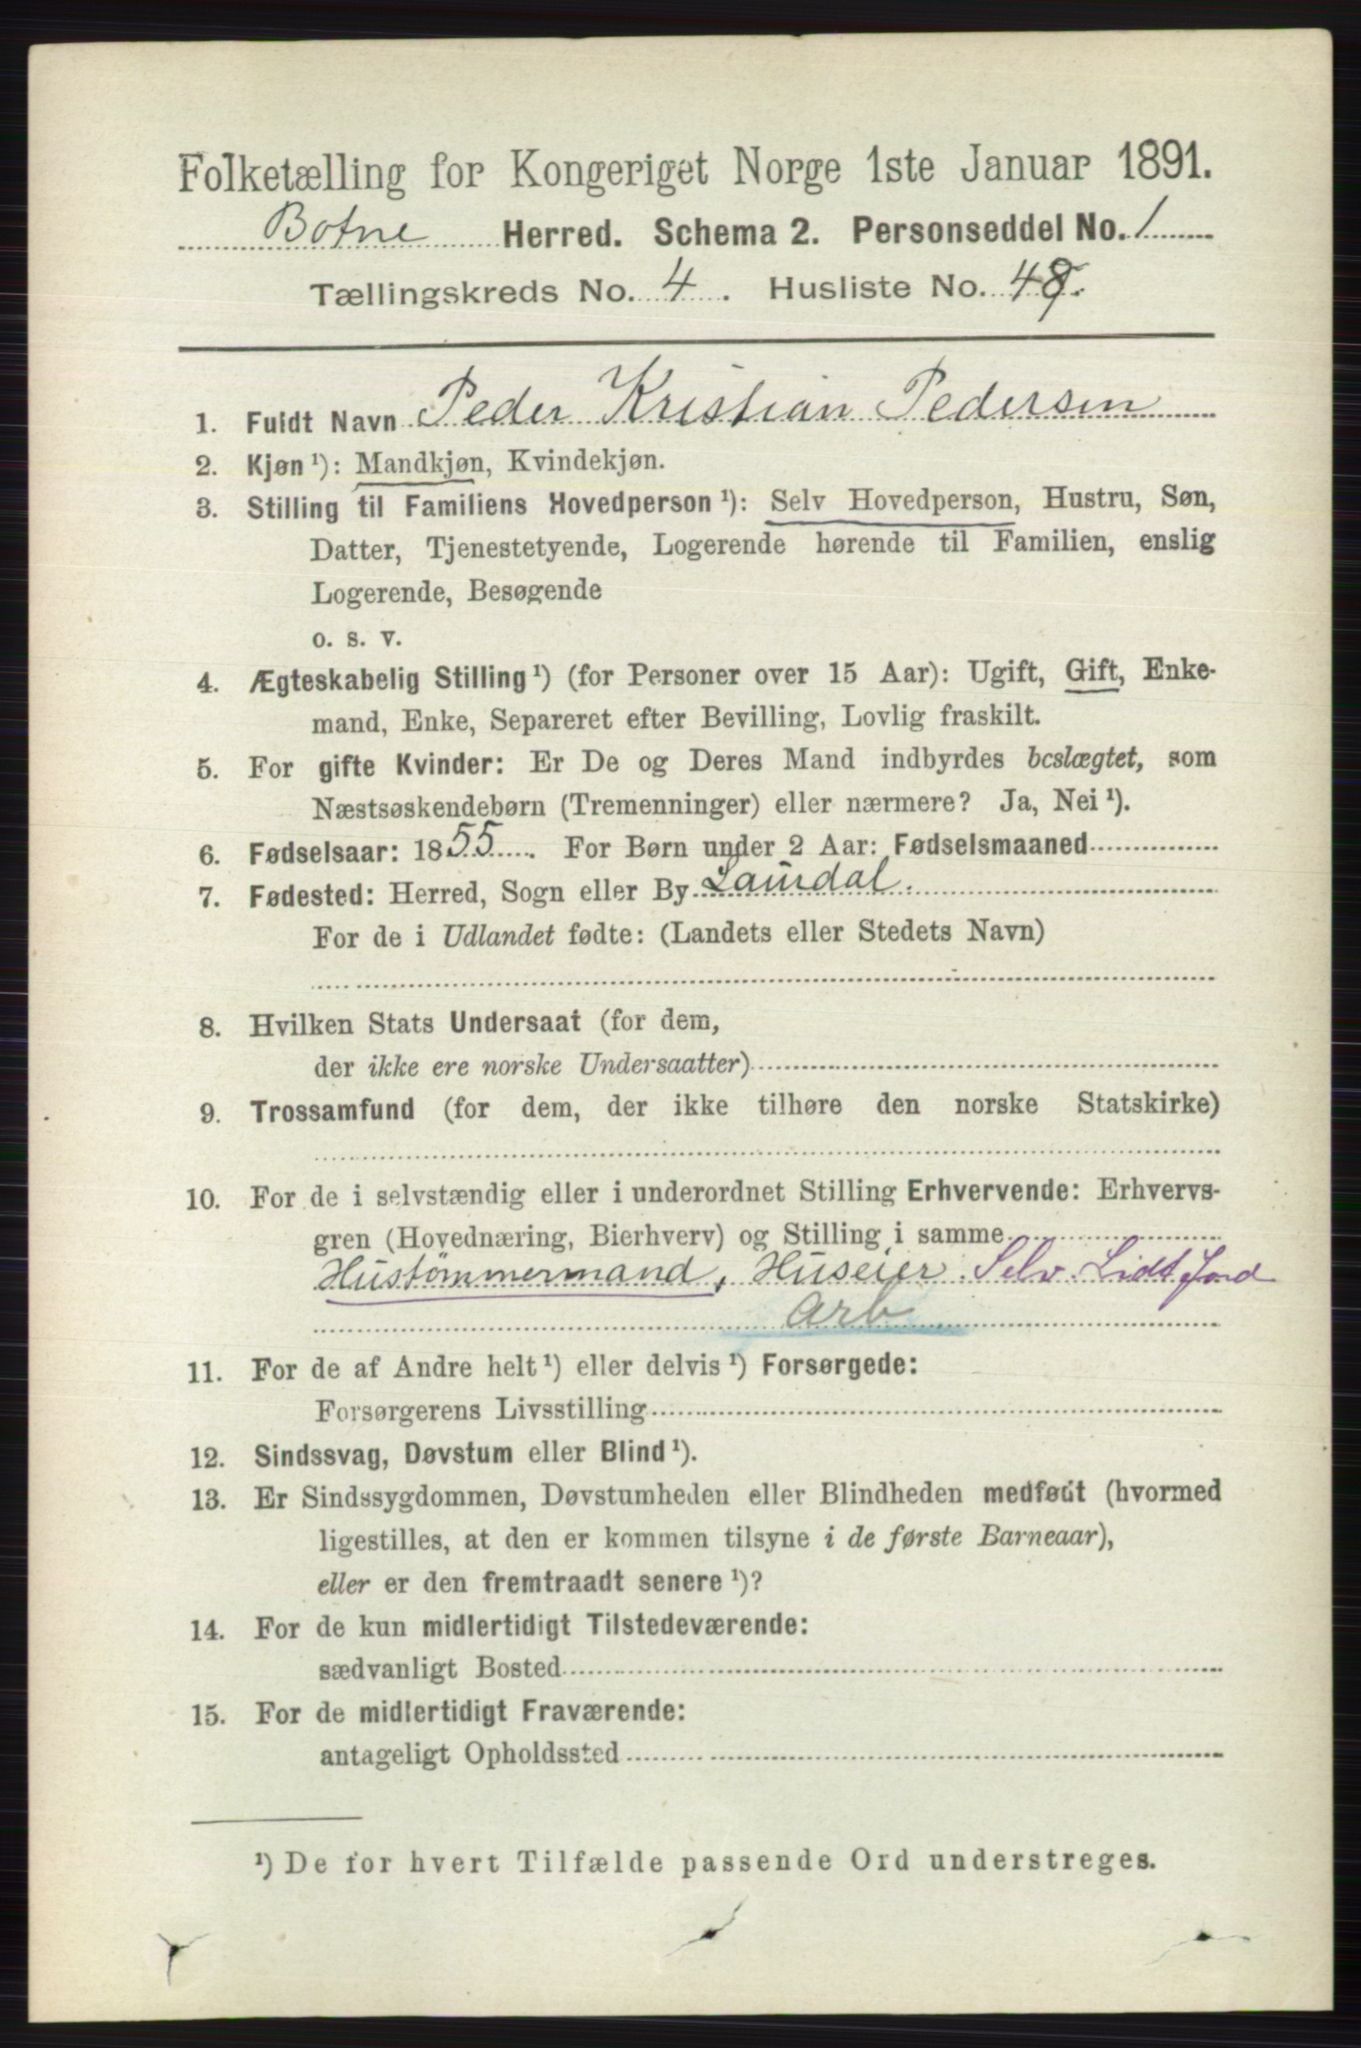 Folketælling for Kongeriget Norge 1ste Januar 1891.
Botne Herred. Schema 2. Personseddel No. 1
Tællingskreds No. 4. Husliste No. 48.
1. Fuldt Navn Peder Kristian Pedersen
2. Kjøn ¹): Mandkjøn, Kvindekjøn.
3. Stilling til Familiens Hovedperson ¹): Selv Hovedperson, Hustru, Søn,
Datter, Tjenestetyende, Logerende hørende til Familien, enslig
Logerende, Besøgende
o. s. v.
4. Ægteskabelig Stilling ¹) (for Personer over 15 Aar): Ugift, Gift, Enke-
mand, Enke, Separeret efter Bevilling, Lovlig fraskilt.
5. For gifte Kvinder: Er De og Deres Mand indbyrdes beslægtet, som
Næstsøskendebørn (Tremenninger) eller nærmere? Ja, Nei ¹).
6. Fødselsaar: 1855. For Børn under 2 Aar: Fødselsmaaned
7. Fødested: Herred, Sogn eller By Laurdal.
For de i Udlandet fødte: (Landets eller Stedets Navn)
8. Hvilken Stats Undersaat (for dem,
der ikke ere norske Undersaatter)
9. Trossamfund (for dem, der ikke tilhøre den norske Statskirke)
10. For de i selvstændig eller i underordnet Stilling Erhvervende: Erhvervs-
gren (Hovednæring, Bierhverv) og Stilling i samme
Hustømmermand, Huseier. Selv. Lidt Jord
Arb
11. For de af Andre helt ¹) eller delvis ¹) Forsørgede:
Forsørgerens Livsstilling
12. Sindssvag, Døvstum eller Blind ¹).
13. Er Sindssygdommen, Døvstumheden eller Blindheden medfødt (hvormed
ligestilles, at den er kommen tilsyne i de første Barneaar),
eller er den fremtraadt senere ¹)?
14. For de kun midlertidigt Tilstedeværende:
sædvanligt Bosted
15. For de midlertidigt Fraværende:
antageligt Opholdssted
¹) De for hvert Tilfælde passende Ord understreges.